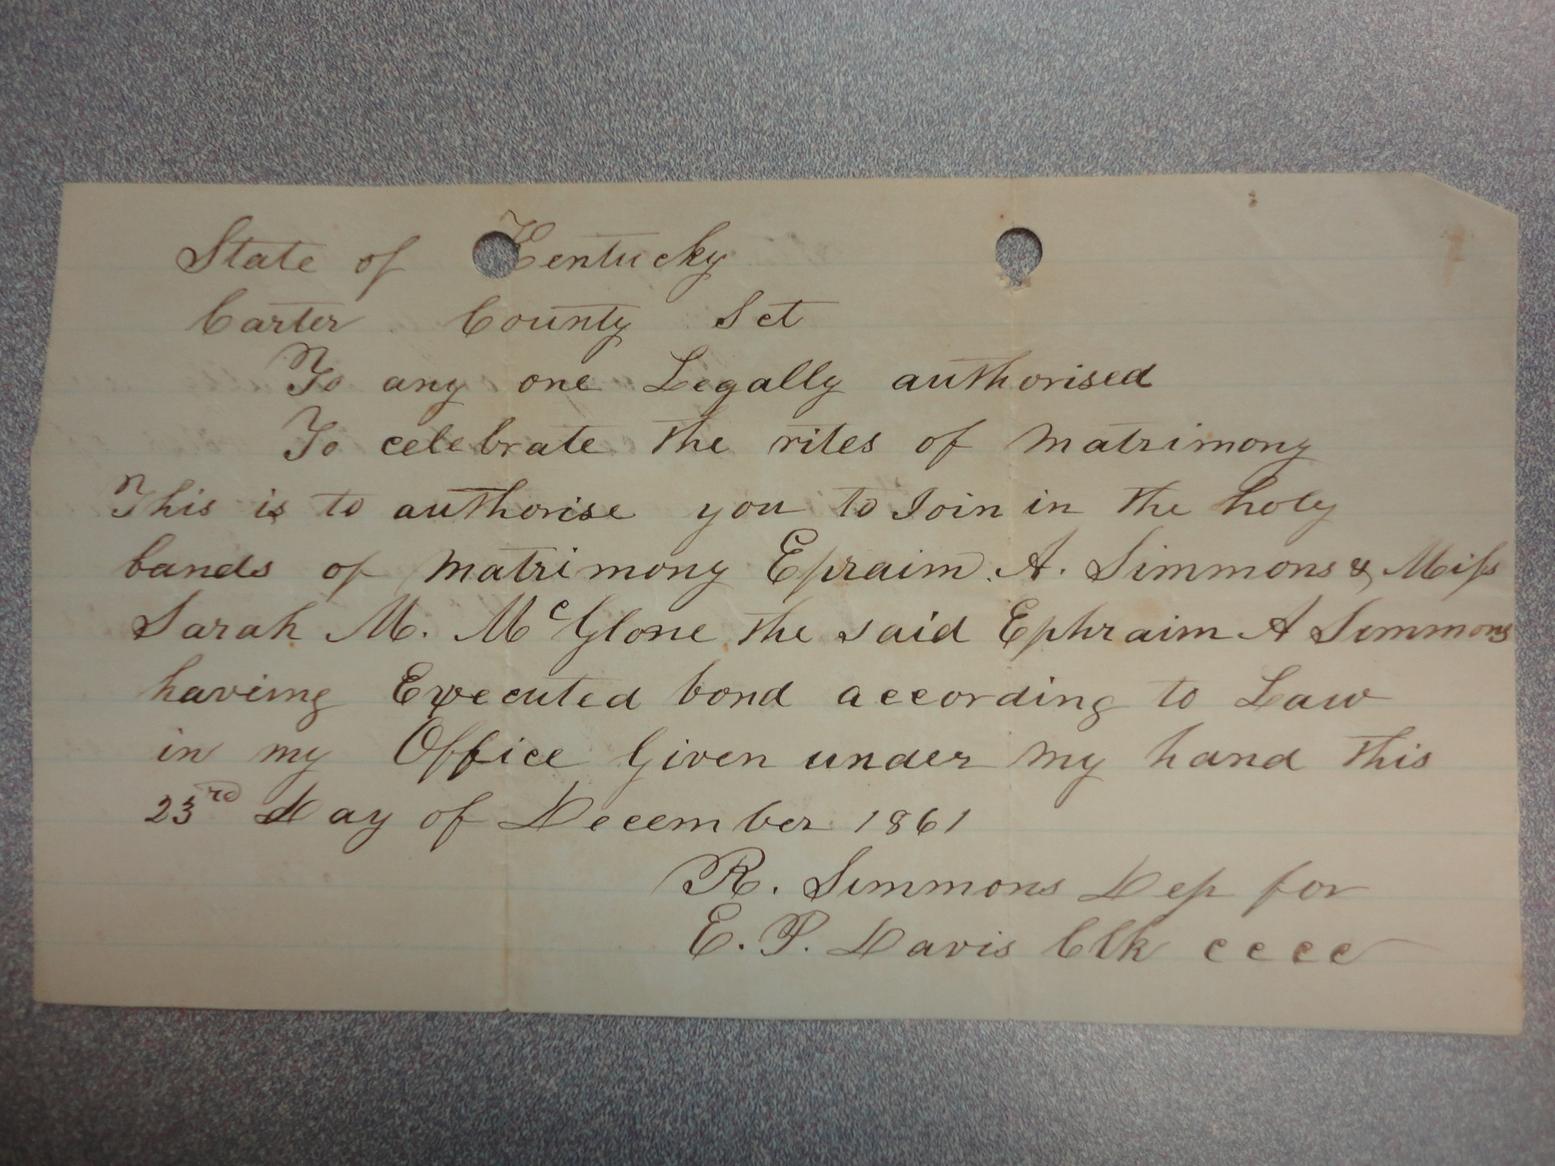 State of Kentucky
Carter County Sct
To any one Legally authorised
To celebrate the rites of matrimony
This is to authorise you to Join in the holy
bands of matrimony Epraim A. Simmons & Miss
Sarah M. McGlone the said Ephraim A Simmons
having Executed bond according to Law
in my Office Given under my hand this
23rd Day of December 1861
R. Simmons Dep for
E. P. Davis Clk cccc